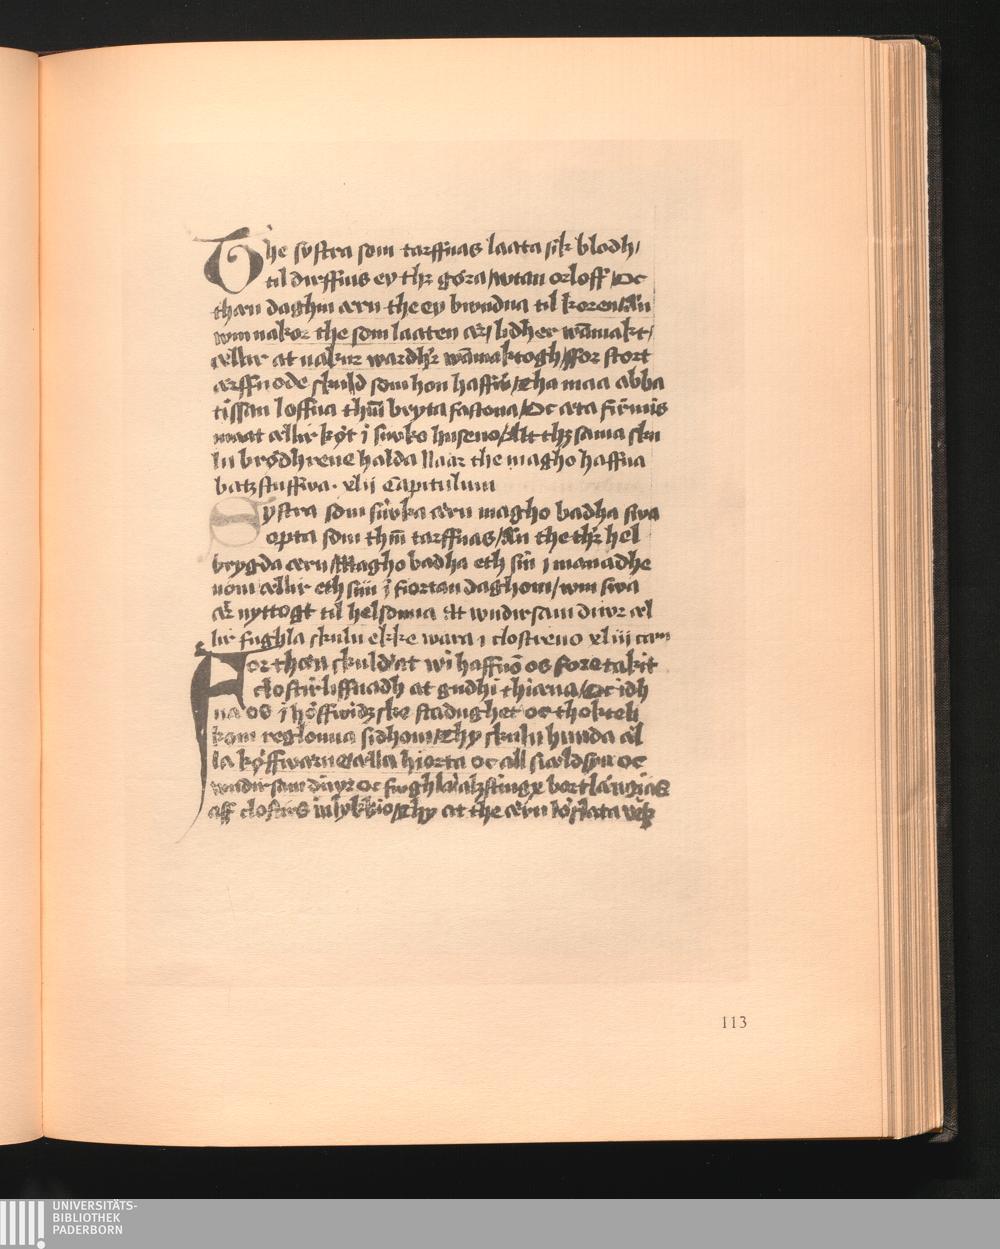 The systra som tarffuas laata sik blodh/
til dirffins ey thz göra/wtan orloff Oc
than daghin æru the ey bwndna til koren/Æn
wm nakor the som laaten ær/lidher wāmakt/
ællir at nakur wardhr wāmaktogh/ffor stort
ærffuode skuld som hon haffr/tha maa abba
tissan loffua thm̄ bryta fastona/Oc æta
maat ællir köt i siwko huseno/Alt thz sama sku
lu brödhrene halda Naar the magho haffua
batzstuffwa. xlij Capitulum
Systra som siwka æru magho badha swa
opta som thm̄ tarffuas/Æn the thr hel
brygda æru/Magho badha eth sin i manadhe
nom ællir eth sin i fiortan daghom/wm swa
ær nyttogt til helsonna At wndirsam diwr æl
lir fughla skulu ekke wara i clostreno xliij cam
For thæn skuld at wi haffuō os foretakit
clostirliffnadh at gudhi thiæna/Oc idh
na os i höffwidzske stadughet oc thokteli
kom reglonna sidhom/Thy skulu hunda al
la köffwærne alla hiorta oc all siældsyn oc
wndirsam diwr oc fwghla bortlængias
aff closters inlykkio/Thy at the æru
113
UNIVERSITÄTS-
BIBLIOTHEK
PADERBORN